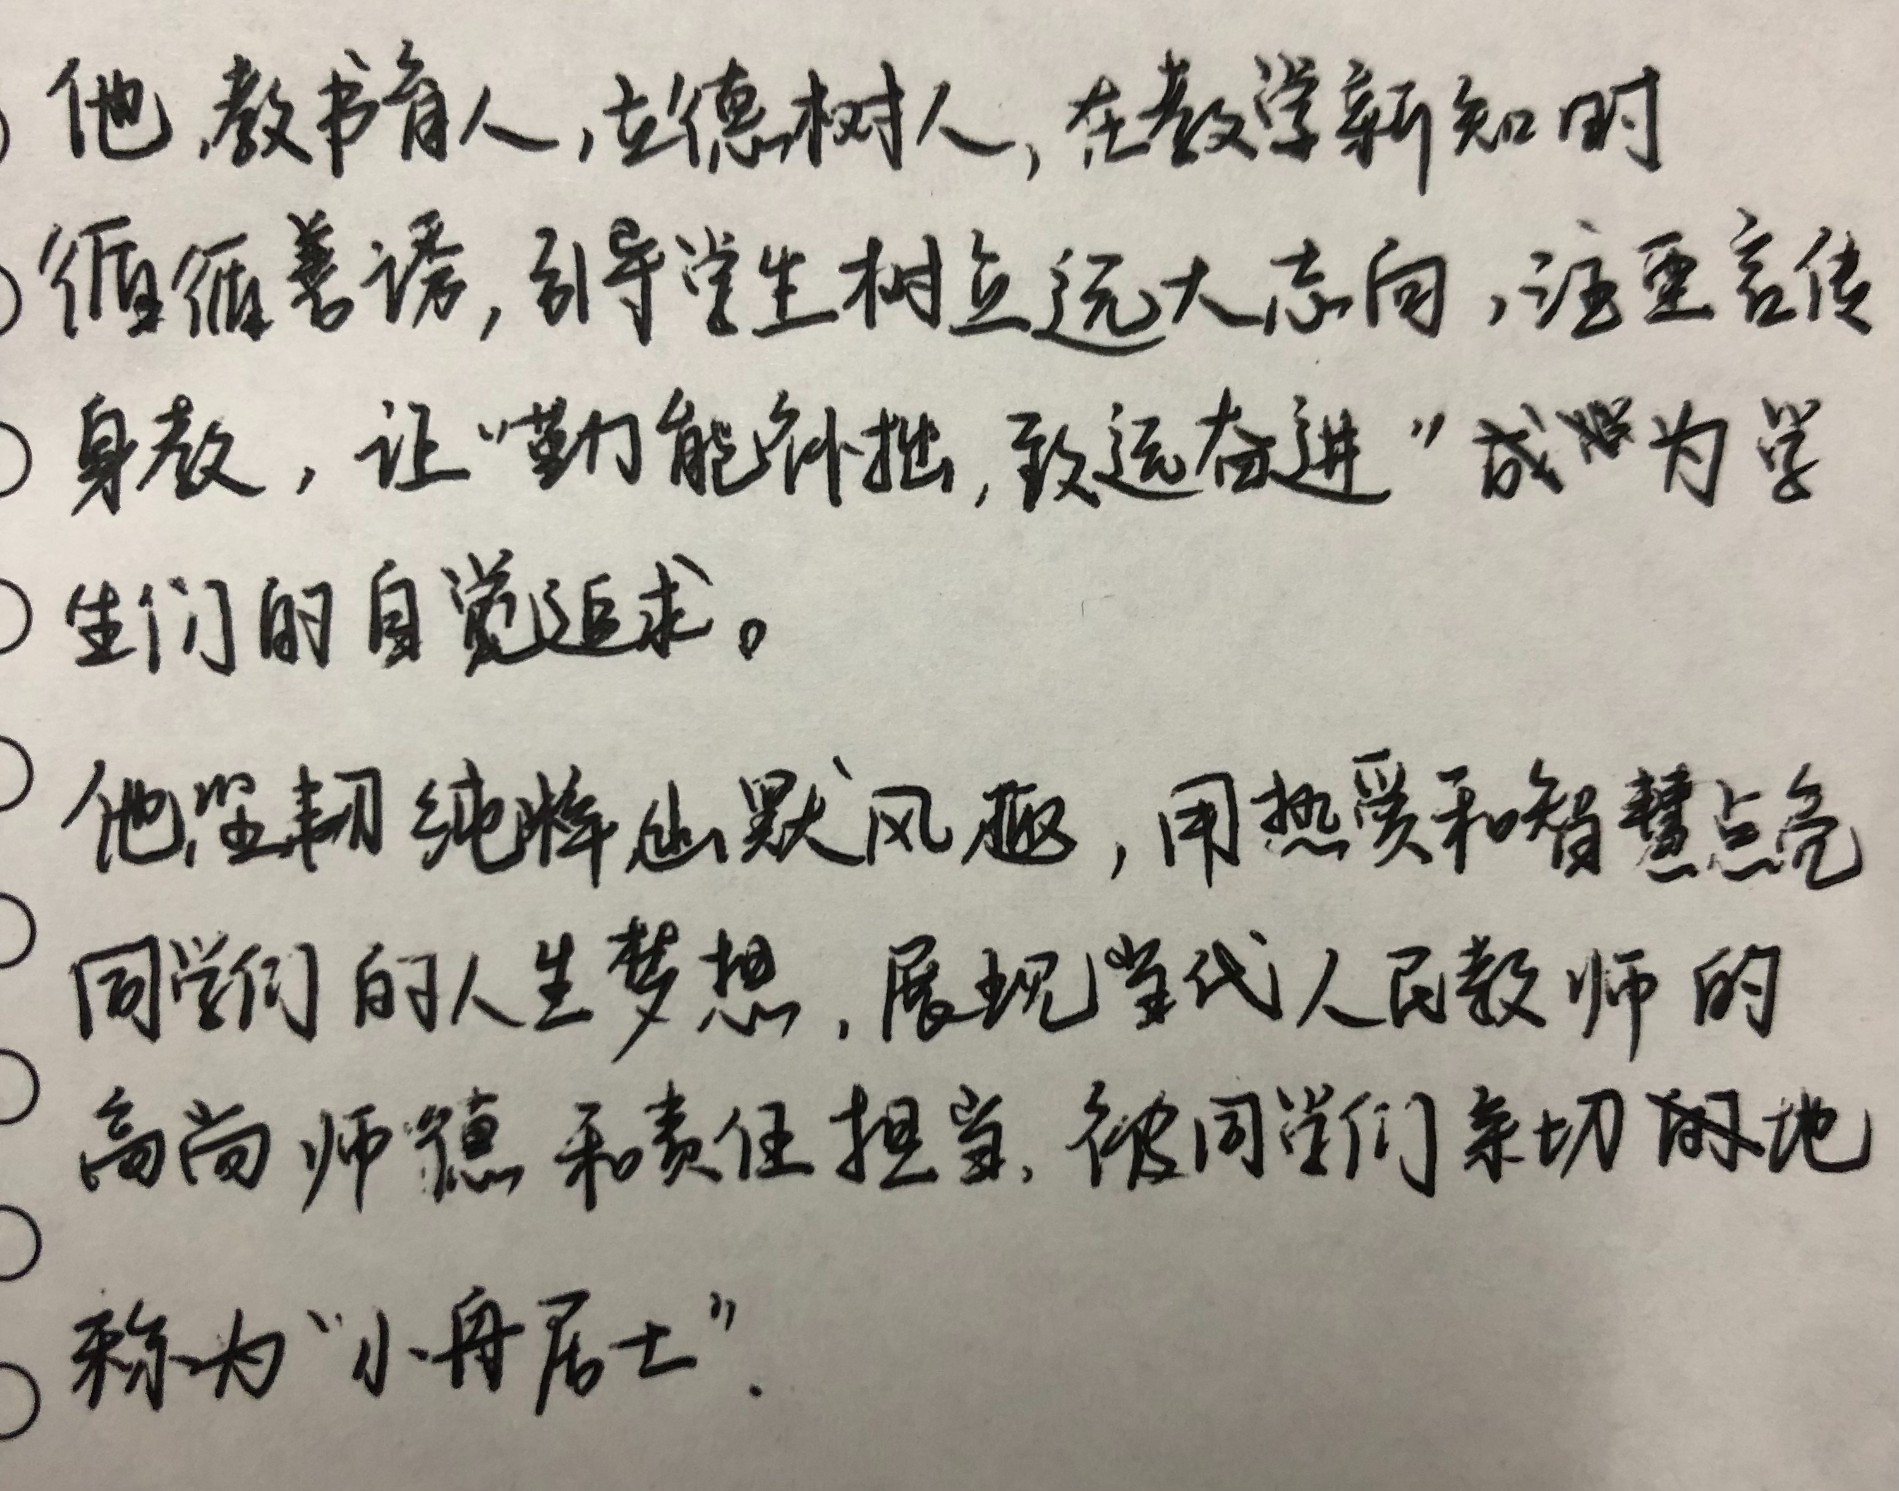 他教书育人,立德树人,在教学新知时
循循善诱,引导学生树立远大志向,注重言传
身教,让“勤能补拙,致远奋进”成为学
生们的自觉追求。
他坚韧纯粹幽默风趣,用热爱和智慧点亮
同学们的人生梦想,展现当代人民教师的
高尚师德和责任担当,被同学们亲切地
称为“小舟居士”.